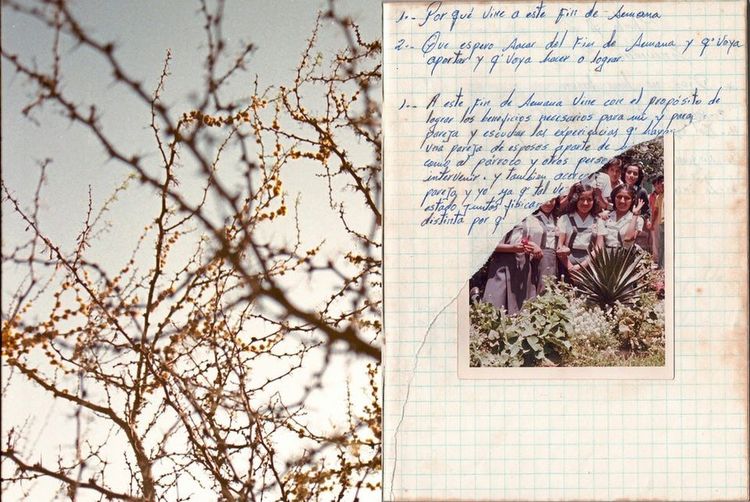 1.- Por qué vine a este fin de semana
2.- Que espero sacar del fin de semana y q' voy a
aportar y q' voy a hacer o lograr
1.- A este fin de semana vine con el propósito de
lograr los beneficios necesarios para mi y para
pareja y escuchar las experiencias q'
una pareja de esposos aparte de
como el párroco y otras
intervenir. y tambien
pareja y yo, ya q' tal
estado juntos
distinta por q'